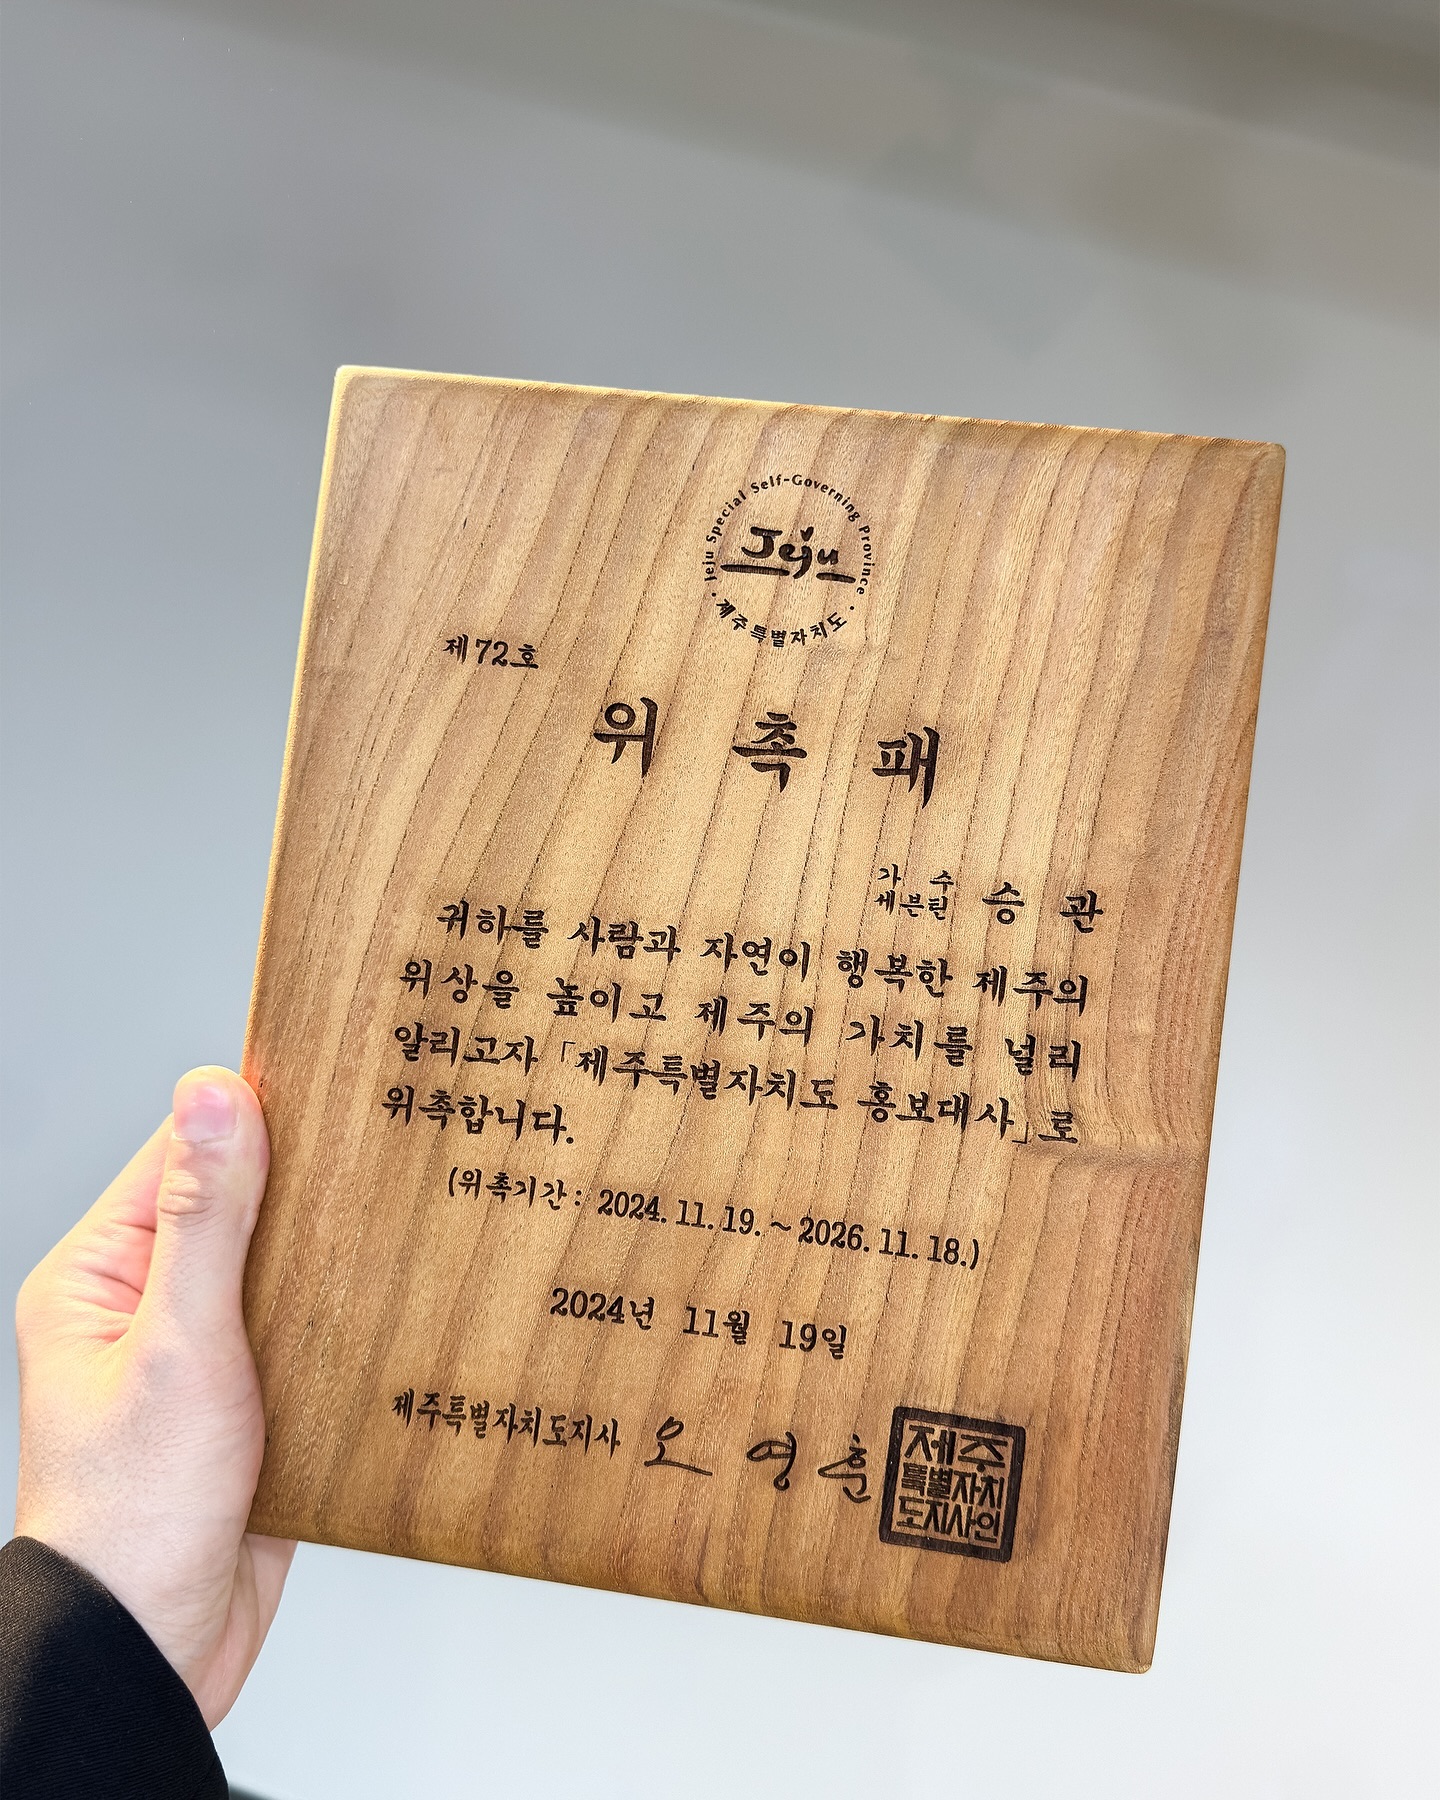 Jeju Special Self-Governing Province
Jeju
제주특별자치도
제72호
위 촉 패
가 수
세븐틴 승 관
귀하를 사람과 자연이 행복한 제주의
위상을 높이고 제주의 가치를 널리
알리고자 「제주특별자치도 홍보대사」로
위촉합니다.
(위촉기간 : 2024. 11. 19. ~ 2026. 11. 18.)
2024년 11월 19일
제주특별자치도지사 오 영 훈
제주
특별자치
도지사인